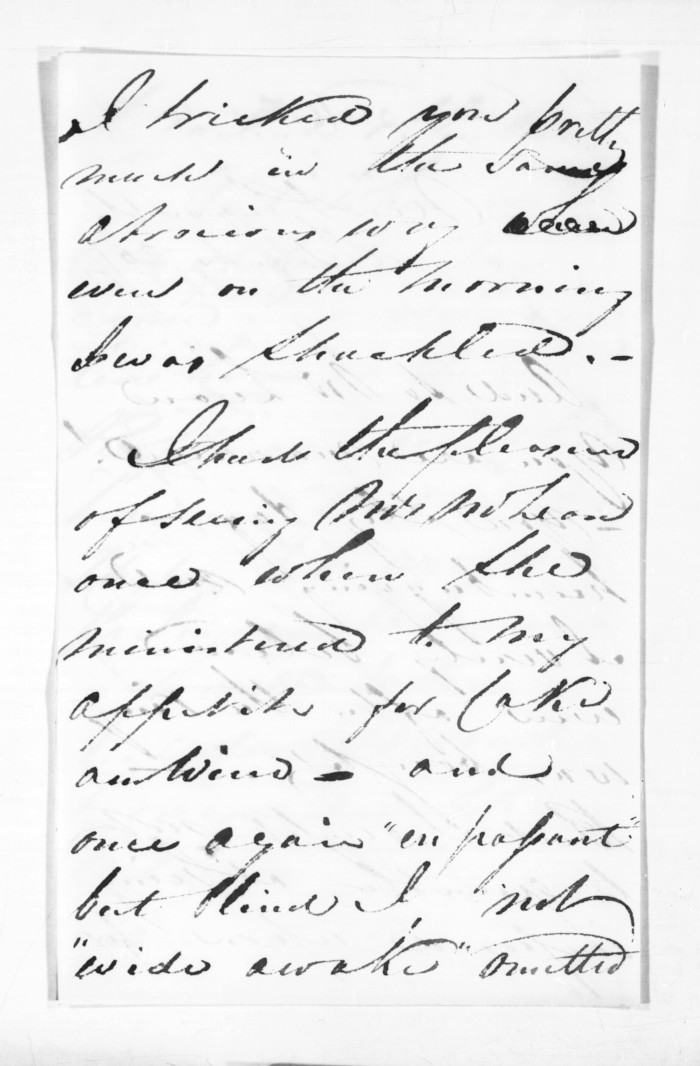 I tricked you pretty
much in the same
atrocious way
even on the morning
I was shackled. —
I had the pleasure
of seeing Mrs McLean
once when she
ministered to my
appetite for Cake
and Wine — and
once again "en passant"
but blind I, not
"wide awake" omitted